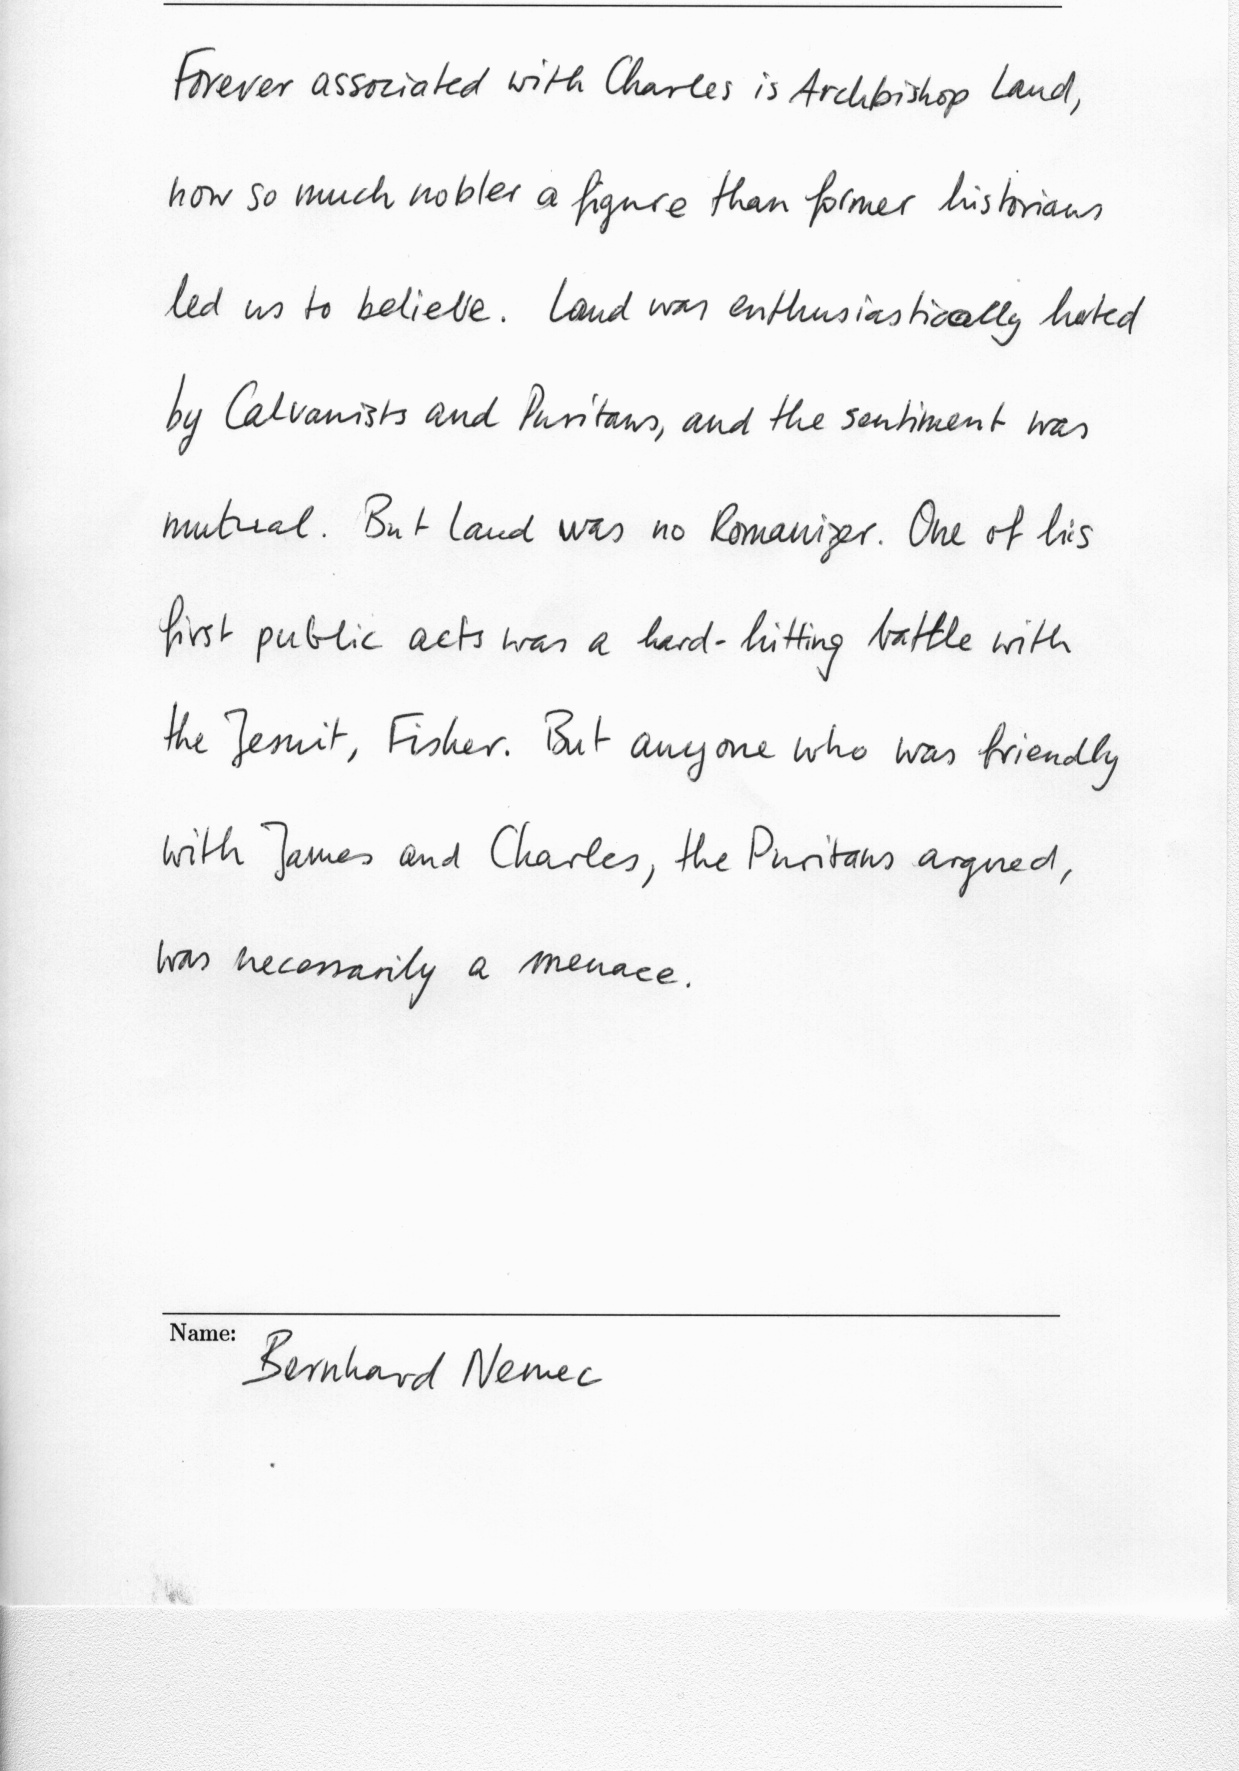 Forever associated with Charles is Archbishop Laud,
now so much nobler a figure than former historians
led us to believe. Laud was enthusiastically hated
by Calvanists and Puritans, and the sentiment was
mutual. But Laud was no Romanizer. One of his
first public acts was a hard-hitting battle with
the Jesuit, Fisher. But anyone who was friendly
with James and Charles, the Puritans argued,
was necessarily a menace.
Name: Bernhard Nemec